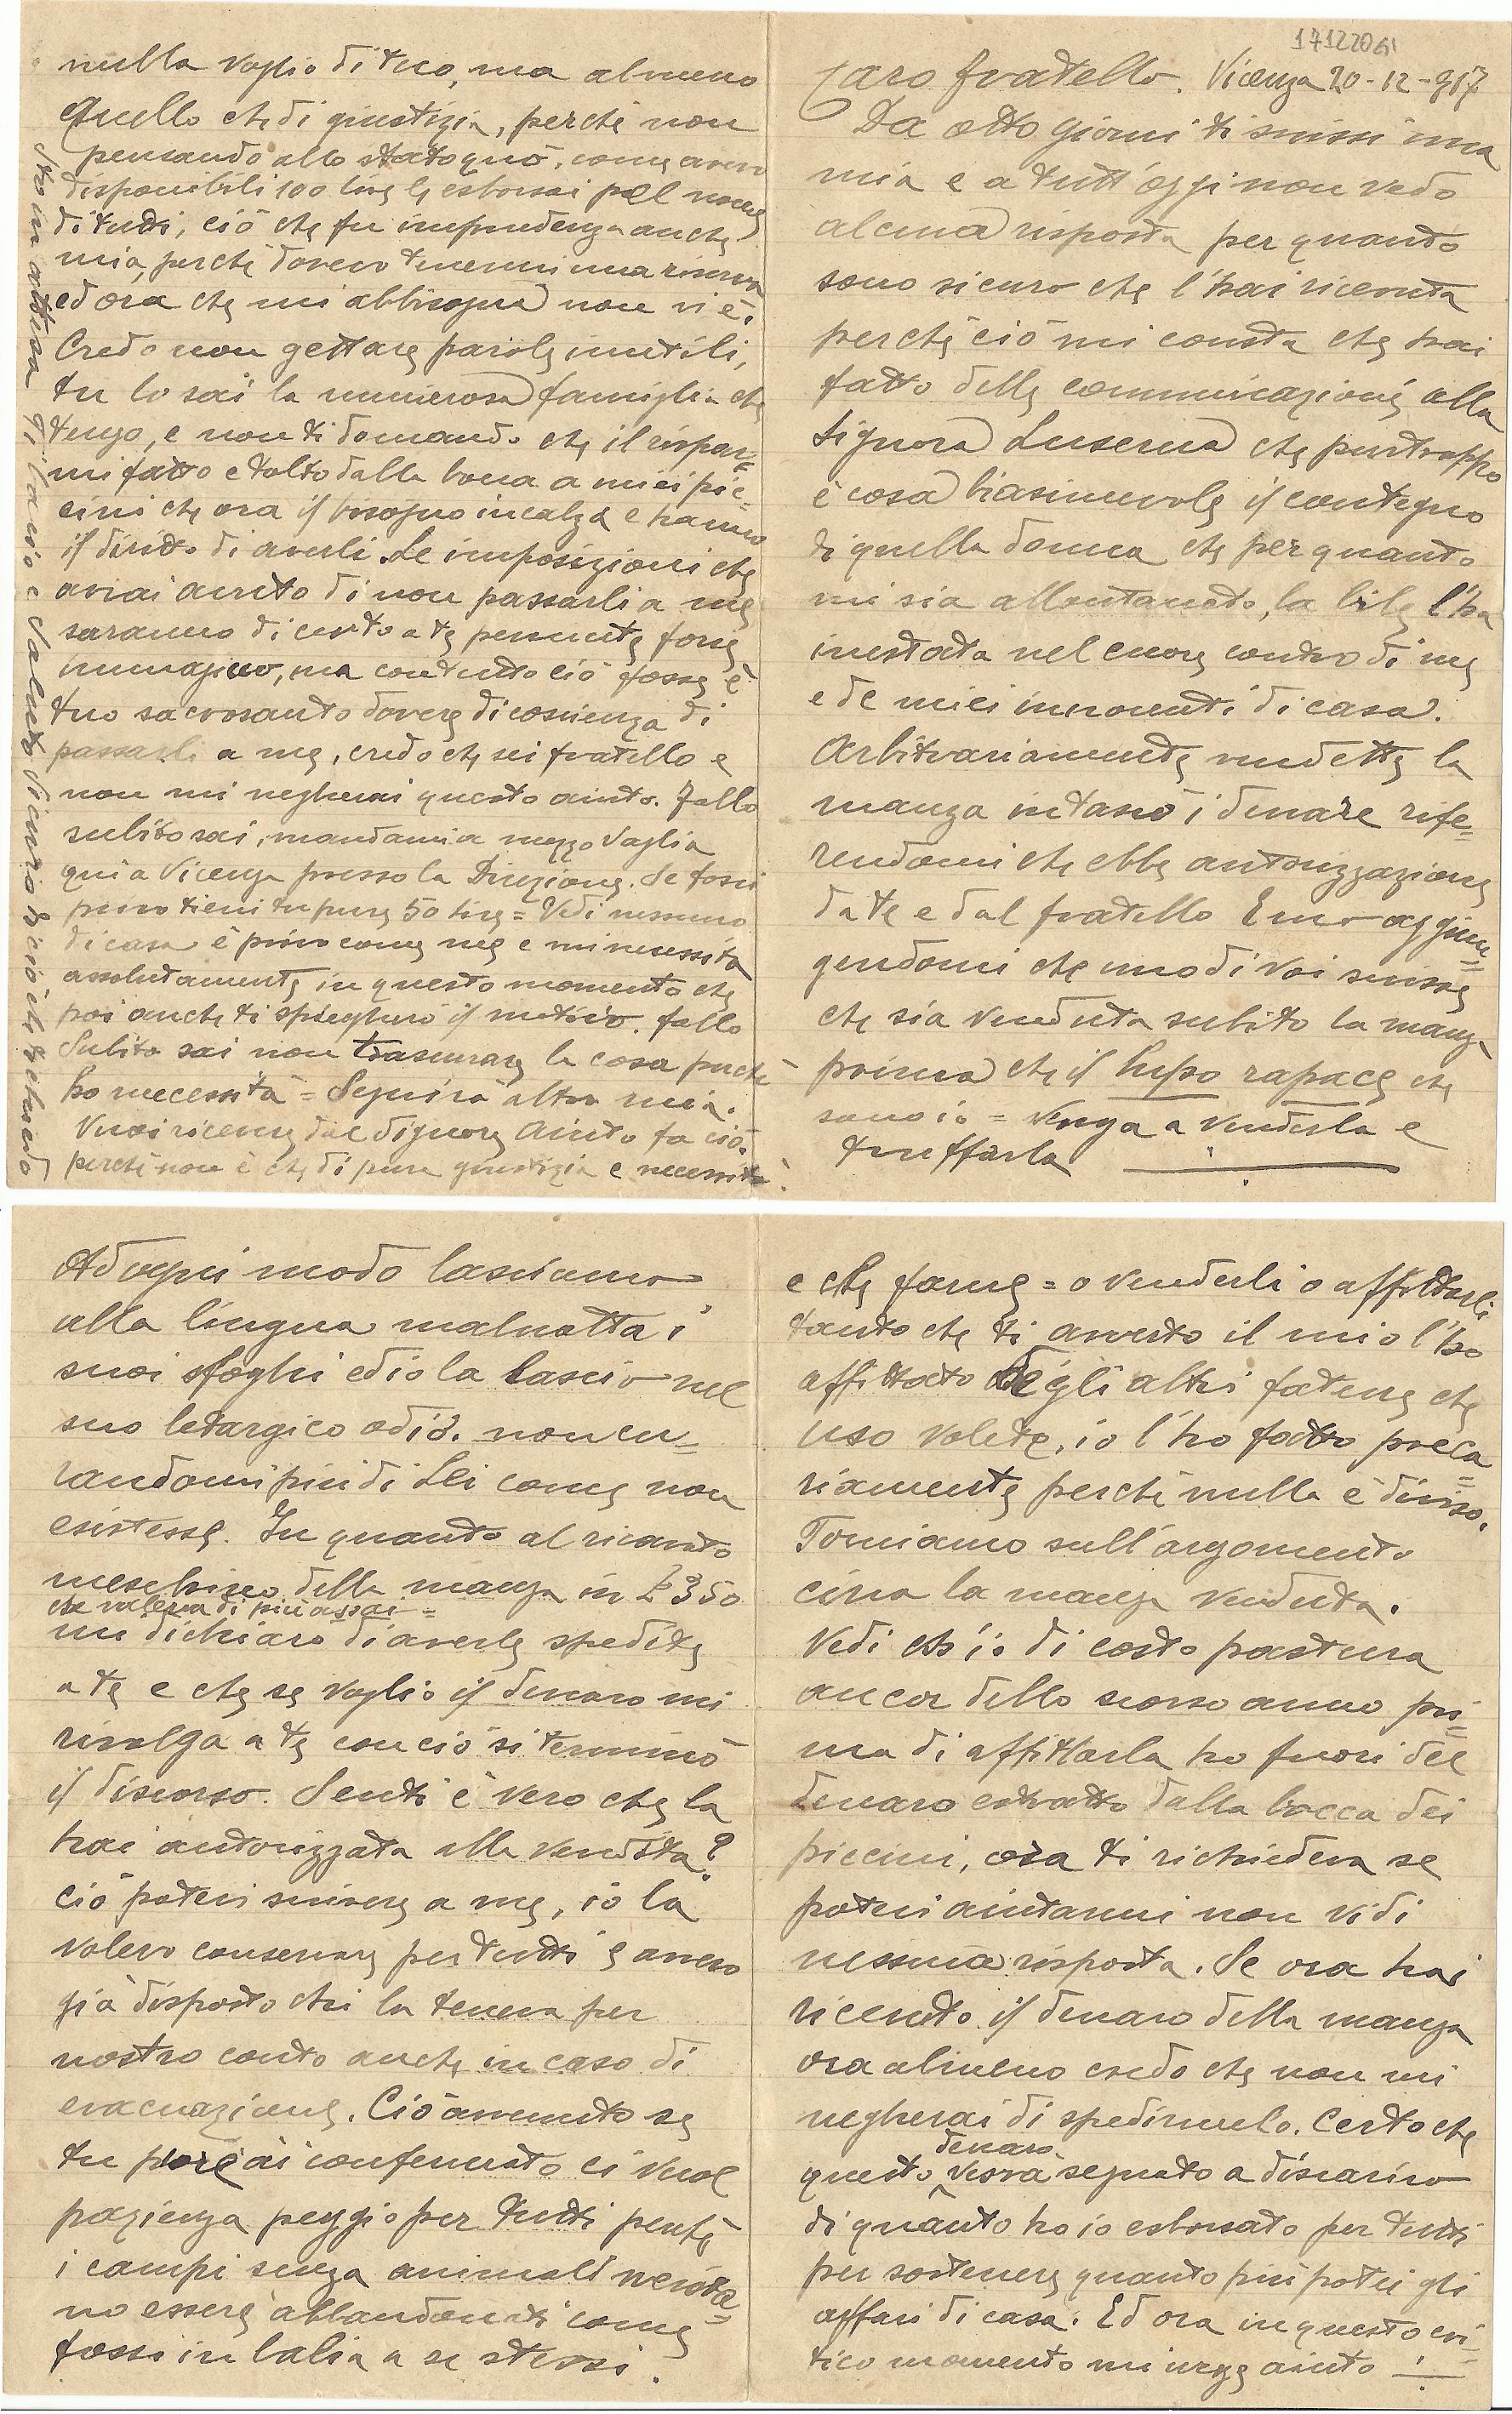 17122061
Caro fratello. Vicenza 20-12-917
Da otto giorni ti scrissi una
mia e a tutt'oggi non vedo
alcuna risposta per quanto
sono sicuro che l'hai ricevuta
perchè ciò mi consta che hai
fatto delle comunicazioni alla
Signora Luserna che purtroppo
è cosa biasimevole il contegno
di quella donna che per quanto
mi sia allontanato, la bile l'ha
inestata nel cuore contro di me
e de miei innocenti di casa.
Arbitrariamente vendette la
manza intascò i denare rife=
rendomi che ebbe autorizzazione
da te e dal fratello aggiun=
gendomi che uno di voi scrisse
che sia venduta subito la manza
prima che il Lupo rapace che
sono io = venga a venderla e
truffarla
Ad ogni modo lasciamo
alla lingua malnatta i
suoi sfoghi ed io la lascio nel
suo letargico odio. non cu=
randomi più di Lei come non
esistesse. In quanto al ricavato
meschino della manza in £ 350
che valeva di più assai =
mi dichiarò di averle spedite
a te e che se voglio il denaro mi
rivolga a te con ciò si terminò
il discorso. Senti è vero che la
hai autorizzata alla vendita?
Ciò potevi scrivere a me, io la
volevo conservare per tutti e avevo
già disposto chi la teneva per
nostro conto anche in caso di
evacuazione. Ciò avvenuto se
tu pure ai confermato ci vuol
pazienza peggio per tutti perchè
i campi senza animali
no essere abbandonati come
fossi in balia a se stessi.
e che farne = o venderli o affittarli
tanto che ti avverto il mio l'ho
affittato degli altri fatene che
uso volete, io l'ho fatto preca
riamente perchè nulla è diviso.
Torniamo sull'argomento
circa la manza venduta.
Vedi ch'io di costo pastura
ancor dello scorso anno pri=
ma di affittarla ho fuori del
denaro estratto dalla bocca dei
piccini, ora ti richiedeva se
potevi aiutarmi non vidi
nessuna risposta. Se ora hai
ricevuto il denaro della manza
ora almeno credo che non mi
negherai di spedirmelo. Certo che
denaro
questo verrà segnato a discarico
di quanto ho io esborsato per tutti
per sostenere quanto più potei gli
affari di casa. Ed ora in questo cri=
tico momento mi urge aiuto
nulla voglio di tuo, ma almeno
quello che di giustizia, perchè non
pensando allo stato quo, come avevo
disponibili 100 lire le esborsai pel nome
di tutti, ciò che fu imprudenza anche
mia, perchè dovevo tenermi una riserva
ed ora che mi abbisogna non vi è.
Credo non gettare parole inutili,
tu lo sai la numerosa famiglia che
tengo, e non ti domando che il rispar=
mi fatto e tolto dalla bocca a miei pic=
cini che ora il bisogno incalza e hanno
il diritto di averli. Le imposizioni che
avrai avuto di non passarli a me
saranno di certo a te pervenute forse
immagino, ma con tutto ciò fosse è
tuo sacrosanto dovere di coscienza di
passarli a me, credo che sei fratello e
non mi negherai questo aiuto. Fallo
subito sai, mandami a mezzo Vaglia
quì a Vicenza presso la Direzione. Se fossi
privo tieni tu pure 50 lire = Vedi nessuno
di casa è privo come me e mi necessita
assolutamente in questo momento che
poi anche ti spiegherò il motivo. fallo
Subito sai non trascurare la cosa perchè
ho necessità = Seguirà altra mia.
Vuoi ricevere dal Signore aiuto fa ciò.
perchè non è che di pura giustizia e necessità.
Sto in attesa ti bacio e saluto sicuro di ciò che ti chiedo